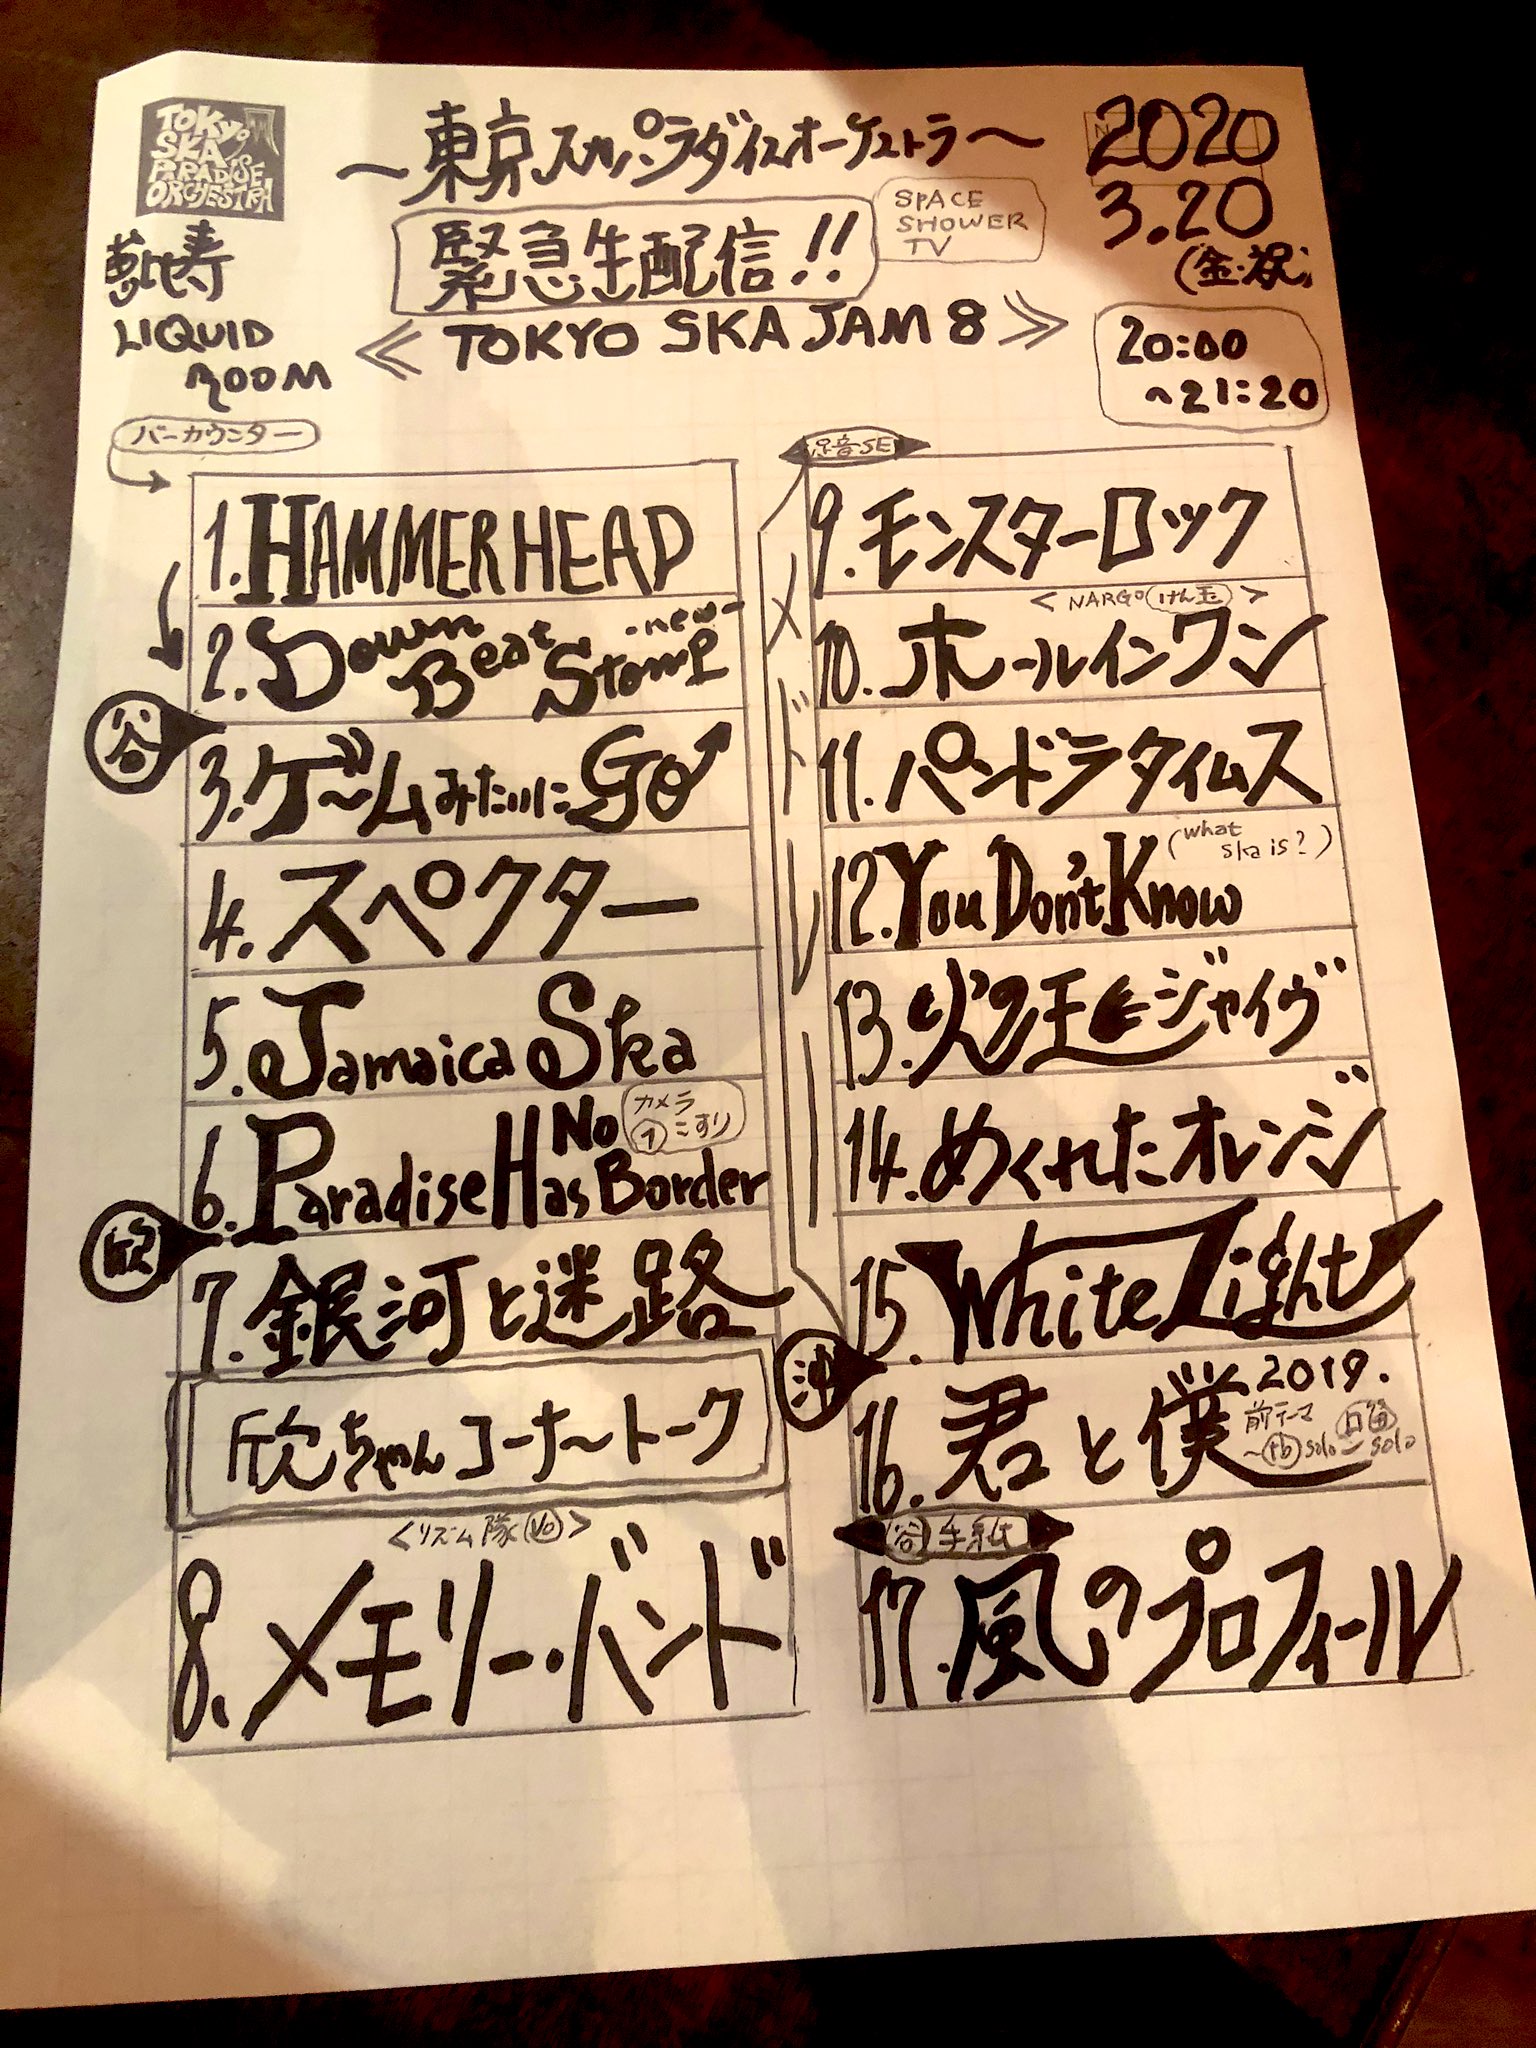 TOKYO
SKA
PARADISE
ORCHESTRA
～東京スカパラダイスオーケストラ～
2020
3.20
(金・祝)
緊急生配信!!
SPACE
SHOWER
TV
恵比寿
LIQUID
ROOM
≪ TOKYO SKA JAM 8 ≫
20:00
~21:20
バーカウンター
1. HAMMERHEAD
2. Down Beat Stomp -new-
谷
3. ゲームみたいにGO
4. スペクター
5. Jamaica Ska
6. Paradise Has No Border
カメラ
こすり
欣
7. 銀河と迷路
欣ちゃんコーナートーク
<リズム隊 Vo>
8. メモリー・バンド
SE
メドレー
9. モンスターロック
< NARGO けん玉 >
10. ホールインワン
11. パンドラタイムス
12. You Don't Know (what ska is?)
13. 火の玉ジャイヴ
14. めくれたオレンジ
15. White Light
沖
16. 君と僕 2019.
前テーマ
~tb solo – solo
谷 手紙
17. 風のプロフィール